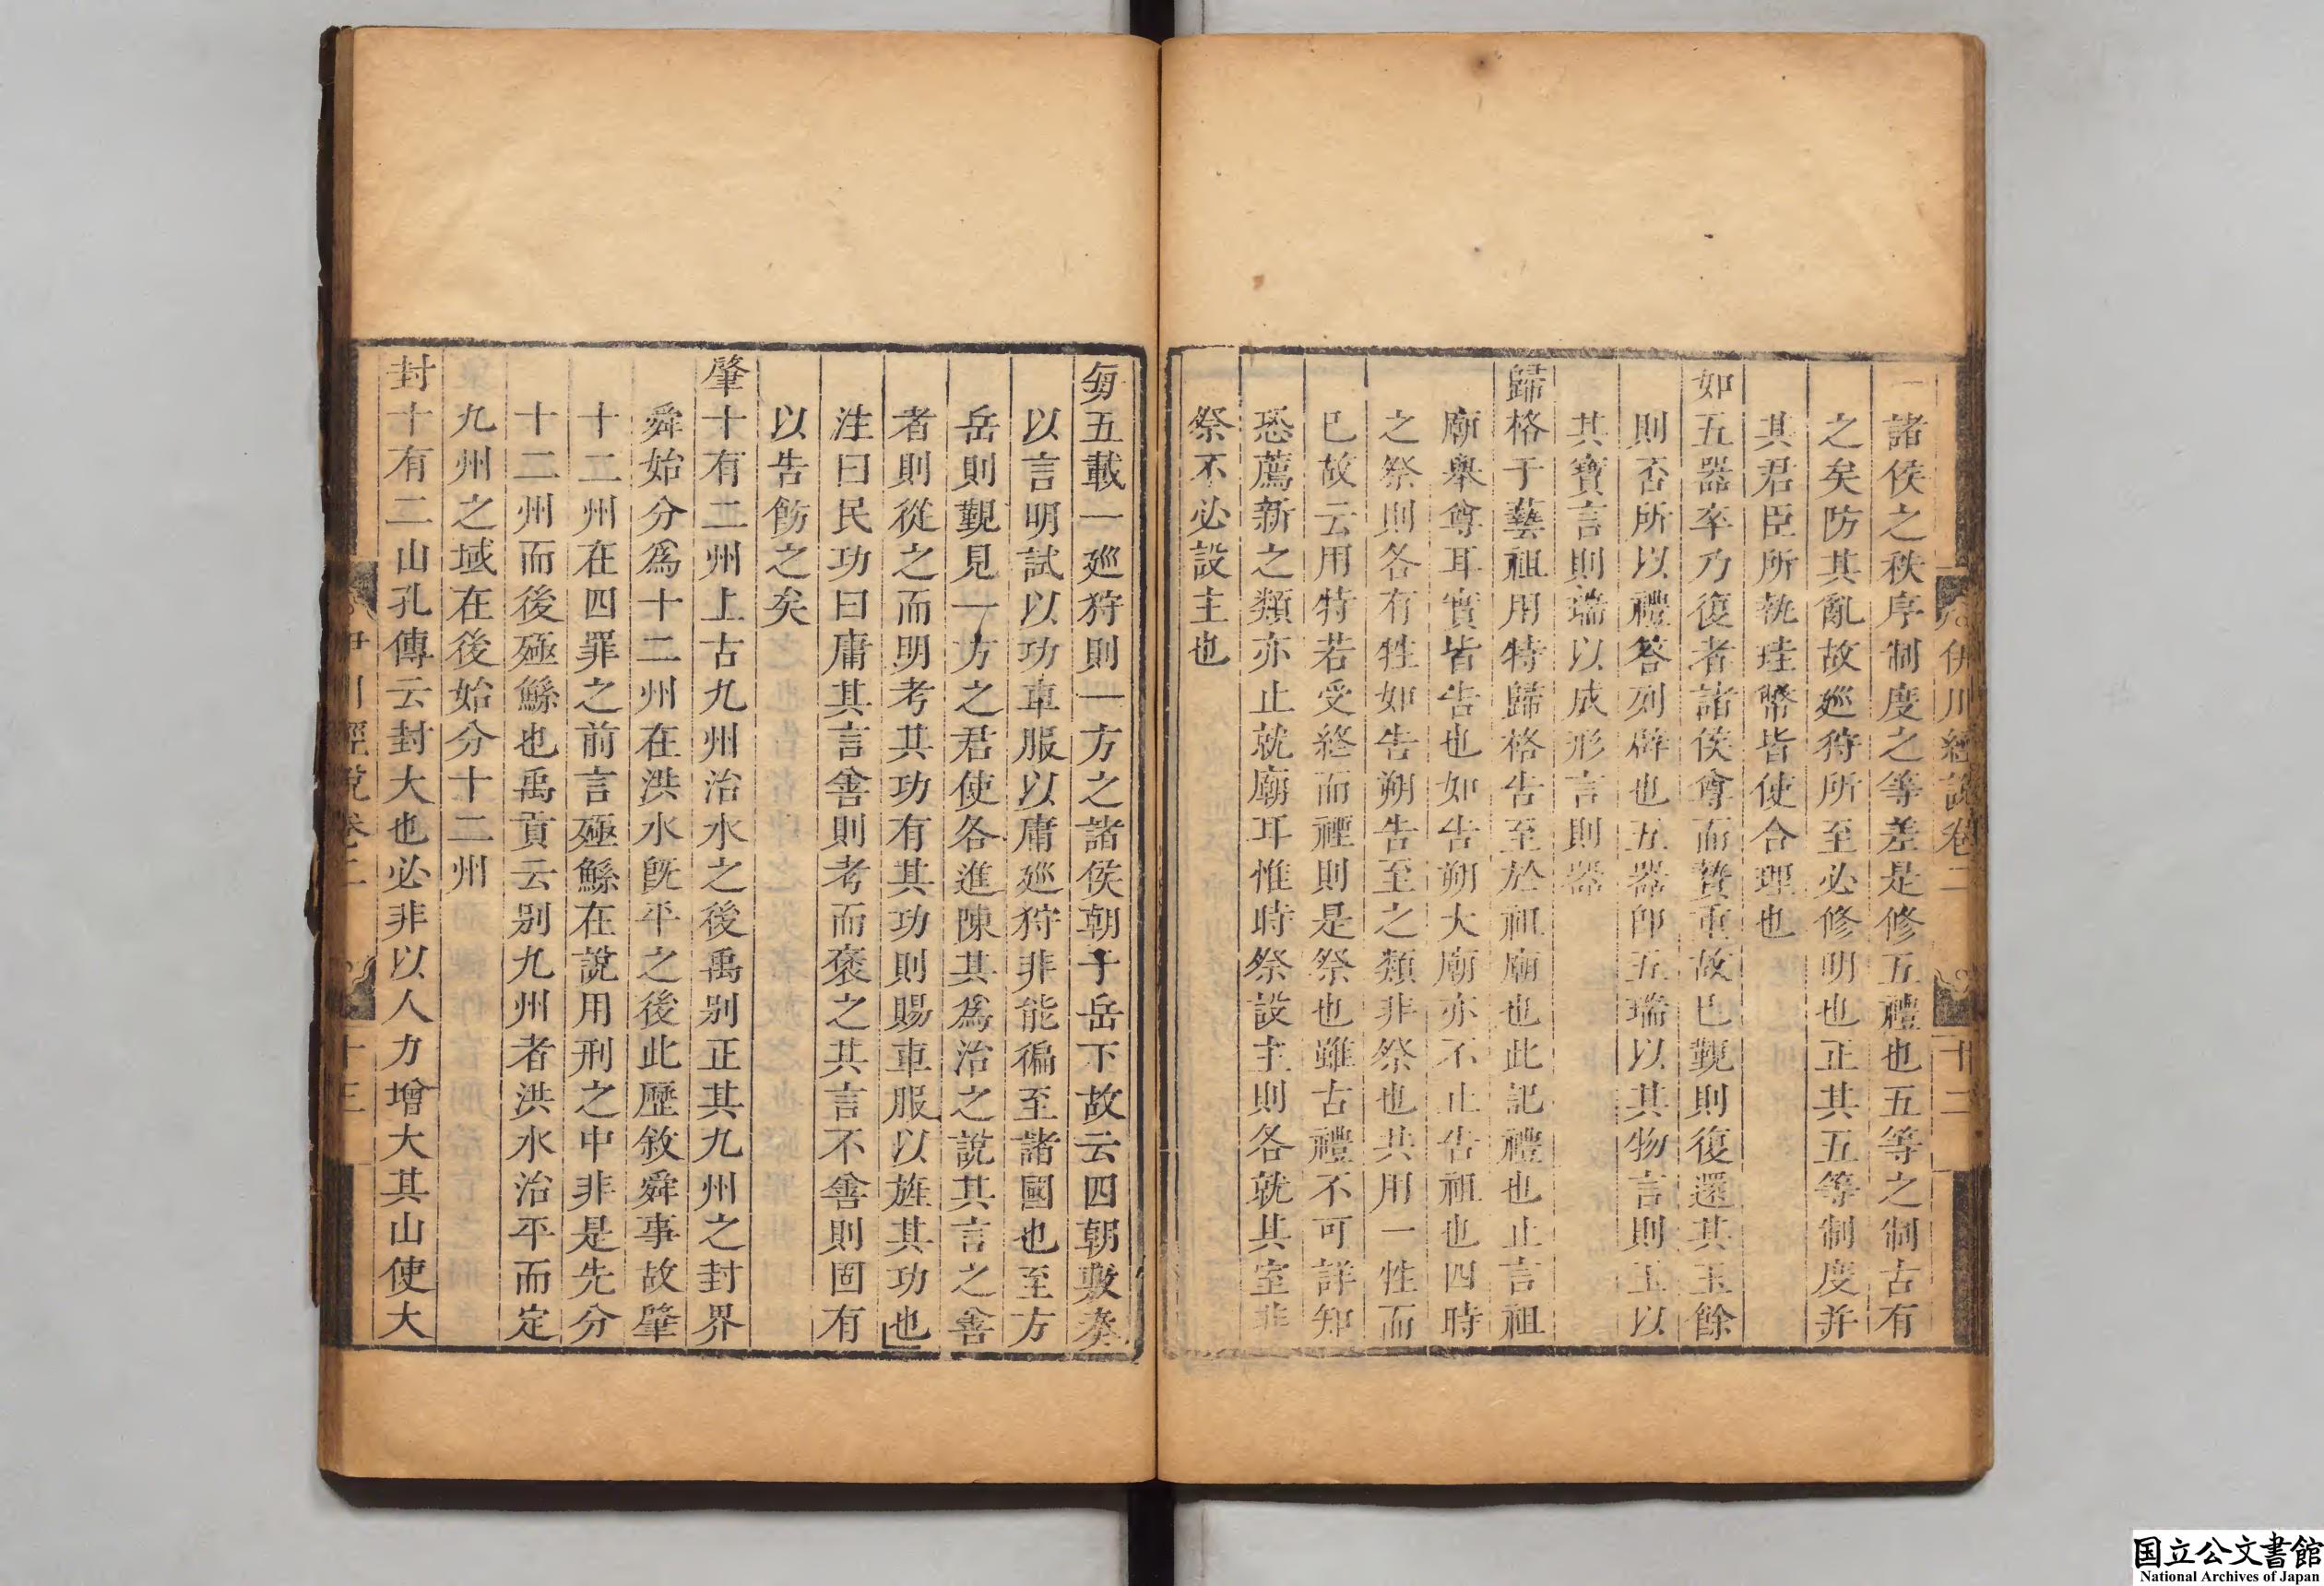 伊川經說卷二 十二
諸侯之秩序制度之等差是修五禮也五等之制古有
之矣防其亂故廵狩所至必修明也正其五等制度并
其君臣所執珪幣皆使合理也
如五器卒乃復者諸侯尊而贄重故已覲則復還其玉餘
則否所以禮答列辟也五器卽五瑞以其物言則玉以
其寶言則瑞以成形言則器
歸格于藝祖用特歸格告至於祖廟也此記禮也止言祖
廟舉尊耳實皆告也如告朔大廟亦不止告祖也四時
之祭則各有牲如告朔告至之類非祭也共用一牲而
已故云用特若受終而禋則是祭也雖古禮不可詳知
恐薦新之類亦止就廟耳惟時祭設主則各就其室非
祭不必設主也
每五載一廵狩則一方之諸侯朝于岳下故云四朝敷奏
以言明試以功車服以庸廵狩非能徧至諸國也至方
岳則覲見一方之君使各進陳其為治之說其言之善
者則從之而明考其功有其功則賜車服以旌其功也
注曰民功曰庸其言善則考而褒之其言不善則固有
以告飭之矣
肇十有二州上古九州治水之後禹别正其九州之封界
舜始分爲十二州在洪水旣平之後此歷敘舜事故肇
十二州在四罪之前言殛鯀在說用刑之中非是先分
十二州而後殛鯀也禹貢云别九州者洪水治平而定
九州之域在後始分十二州
封十有二山孔傳云封大也必非以人力增大其山使大
伊川經說卷二 十三
国立公文書館
National Archives of Japan